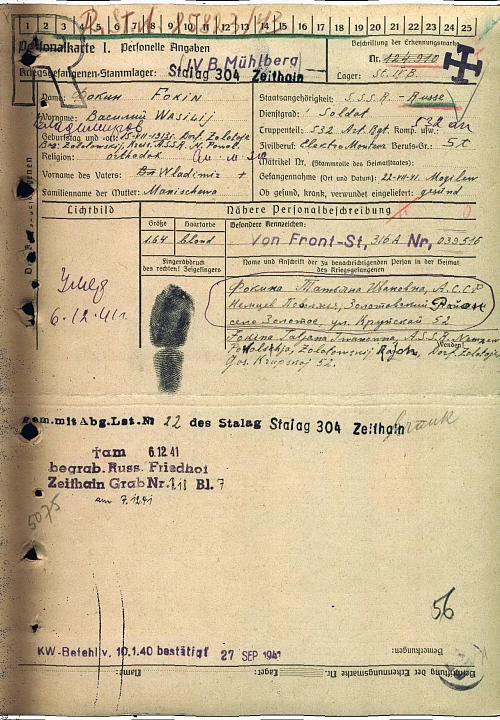 1 2 3 4 5 6 7 8 9 10 11 12 13 14 15 16 17 18 19 20 21 22 23 24 25
Personalkarte I. Personelle Angaben
Beschriftung der Erkennungsmarke
IV B Mühlberg
Nr. 124910
Kriegsgefangenen-Stammlager: Stalag 304 Zeithain
Lager: St. IV B.
Name: Фокин Fokin
Staatsangehörigkeit: S.S.S.R. - Russe
Vorname: Василий Wasilij
Dienstgrad: Soldat
Владимиров
Truppenteil: 532 Art. Rgt. Komp. usw.:
532 ап
Geburtstag und -ort:
Zivilberuf: Electro Monteur Berufs-Gr.: St
Religion: orthodox
Matrikel Nr. (Stammrolle des Heimatstaates):
Vorname des Vaters: Wladimir +
Gefangennahme (Ort und Datum): 22-VII-41. Mogilew
Familienname der Mutter: Manischewa
Ob gesund, krank, verwundet eingeliefert: gesund
Lichtbild
Nähere Personalbeschreibung
Größe
Haarfarbe
Besondere Kennzeichen:
1.64
blond
Von Front-St, 316 A Nr, 039516
Fingerabdruck
des rechten! Zeigefingers
Name und Anschrift der zu benachrichtigenden Person in der Heimat
des Kriegsgefangenen
умер
6.12.41г.
Фокина Татьяна Ивановна, А.С.С.Р.
Немцев Поволжья, Золотовский Район
село Золотое, ул. Крупской 52
Fokina Tatjana Iwanowna, A.S.S.R. Nemzew
Powolshja, Zolotowskij Rajon, Dorf. Zolotoje
Krupskoj 52.
Gem. mit Abg. Lst. № 22 des Stalag Stalag 304 Zeithain
krank
† am 6.12.41
begrab. Russ. Friedhof
Zeithain Grab Nr. Bl. 7
am 7.12.41
5075
56
KW-Befehl v. 10.1.40 bestätigt 27 SEP 1941
Bemerkungen:
Beschriftung der Erkennungsmarke Nr.
Lager:
Name: